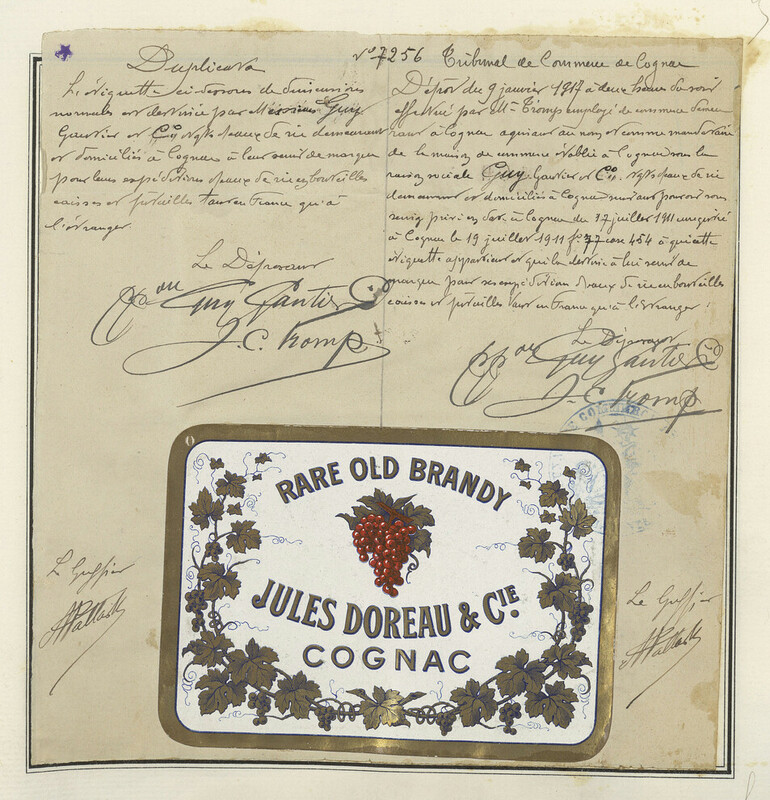 Duplicata
L'étiquette ci-dessous de dimensions
normales est destinée par Messieurs Guy
Gautier et Cie Ngts d'eaux de vie demeurant
et domiciliés à Cognac à leur servir de marque
pour leurs expéditions d'eaux de vie en bouteilles
caisses et futailles tant en France qu'à
l'étranger
Le Déposant
Guy Gautier Cie
J. C. Tromp
No 7256 Tribunal de Commerce de Cognac
Dépôt du 9 janvier 1917 à deux heures du soir
effectué par Mr Tromp employé de commerce demeu
rant à Cognac agissant au nom et comme mandataire
de la maison de commerce établie à Cognac sous la
raison sociale Guy Gautier et Cie Ngts d'eaux de vie
demeurant et domiciliés à Cognac suivant pouvoir sous
seing privé en date à Cognac du 17 juillet 1911 enregistré
à Cognac le 19 juillet 1911 fo 77 case 454 à qui cette
étiquette appartient et qui la destine à lui servir de
marque pour ses expéditions d'eaux de vie en bouteilles
caisses et futailles tant en France qu'à l'étranger
Le Déposant
Guy Gautier Cie
J. C. Tromp
COMMERCE
RARE OLD BRANDY
JULES DOREAU & CIE.
COGNAC
Le Greffier
Le Greffier